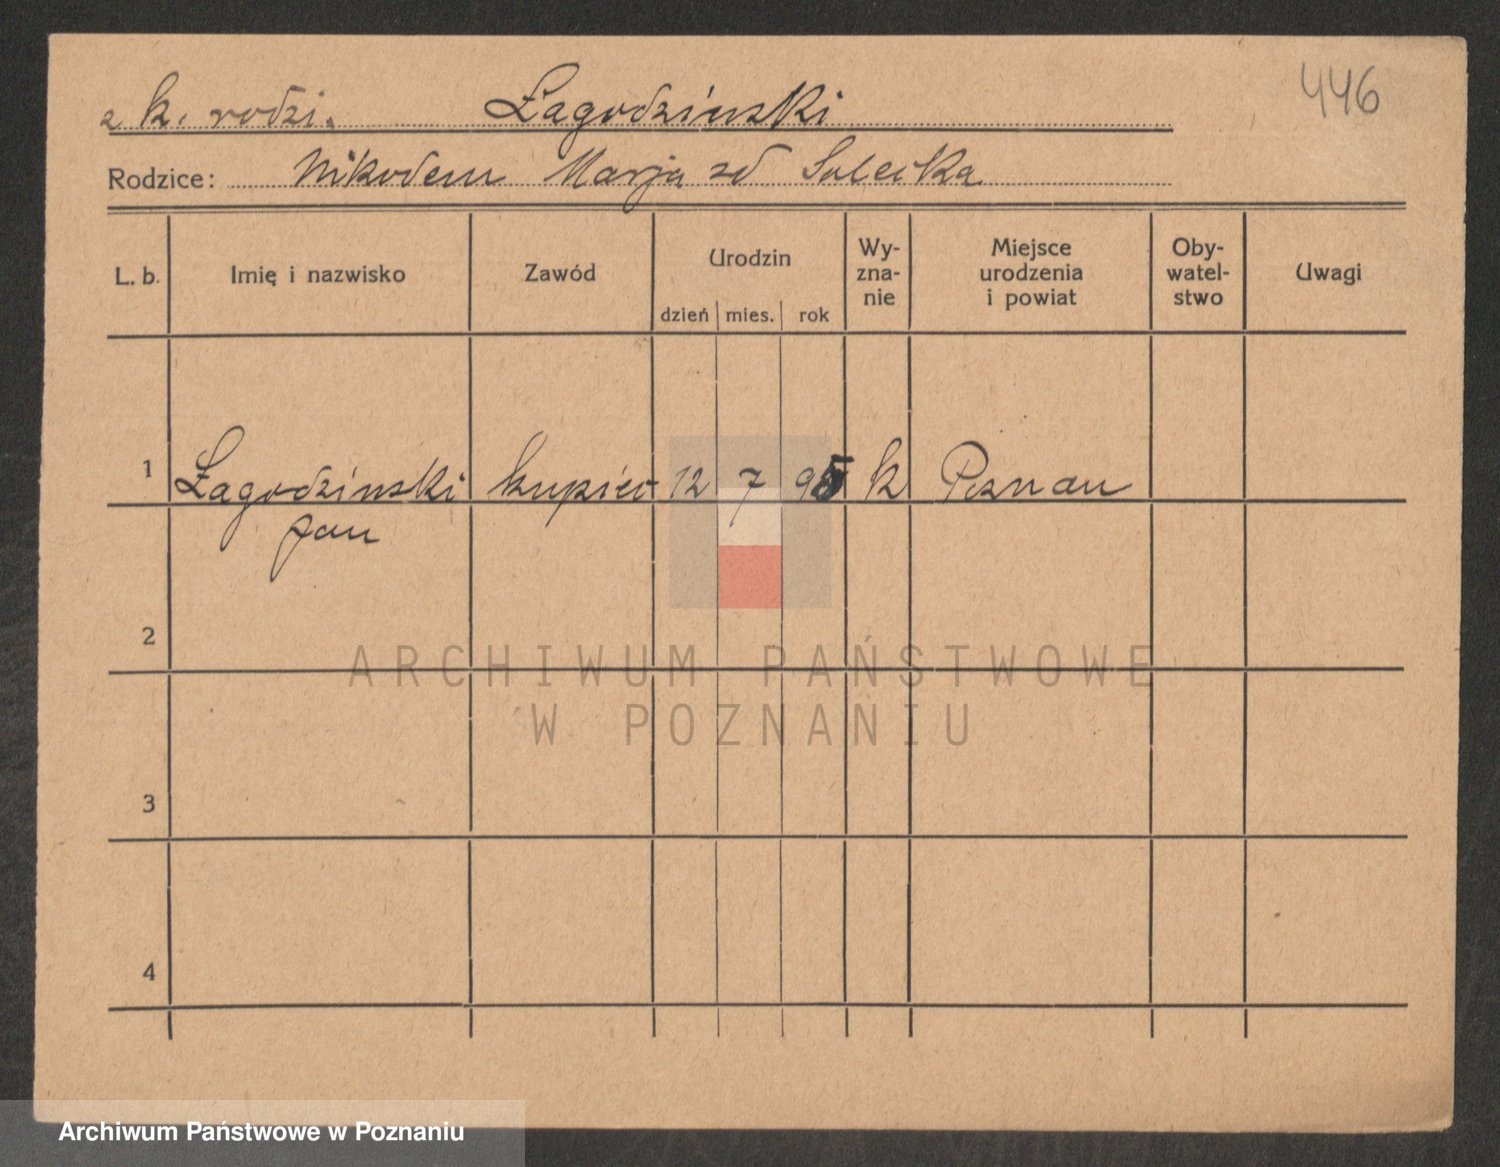 446
z k. rodzi. Łagodzinski
Rodzice: Nikodem Marja zd Solecka
L. b. Imię i nazwisko Zawód Urodzin Wy-zna-nie Miejsce urodzenia i powiat Oby-watel-stwo Uwagi
dzień mies. rok
1 Łagodzinski kupiec 12 7 95 k Poznan
Jan
2
ARCHIWUM PAŃSTWOWE
W POZNANIU
3
4
Archiwum Państwowe w Poznaniu